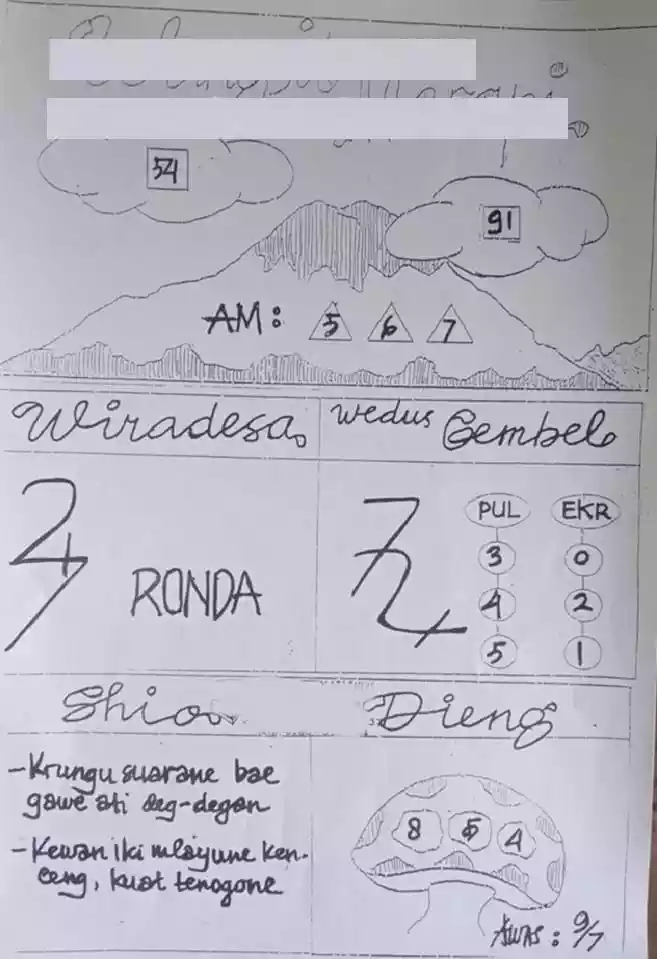 54
91
AM: 5 6 7
Wiradesa
wedus Gembel
RONDA
PUL EKR
3 0
4 2
5 1
Shio
Dieng
-Krungu suarane bae
gawe ati deg-degan
-Kewan iki mlayune ken-
ceng, kuat tenogone
8 5 4
AWAS : 9/7